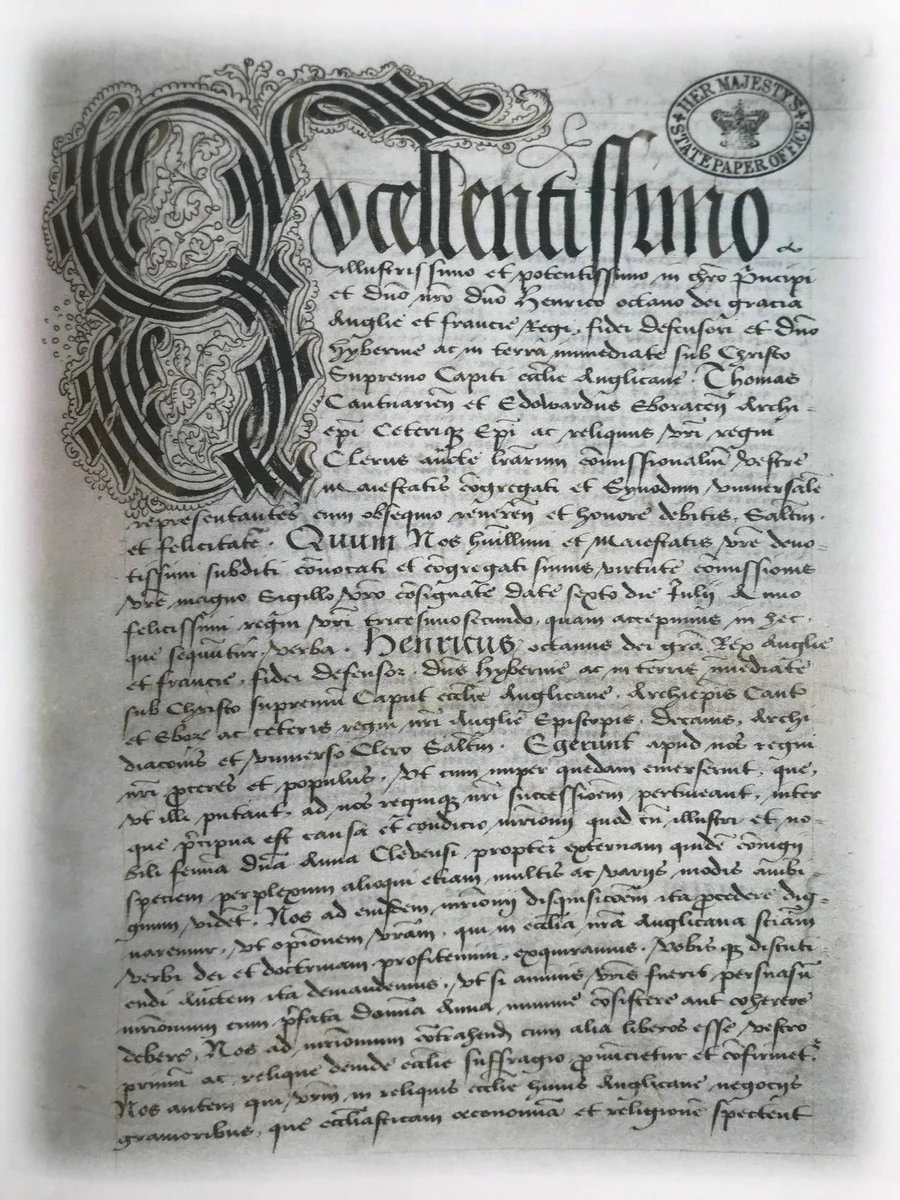 HER MAJESTY'S STATE PAPER OFFICE
Excellentissimo
illustrissimo et potentissimo in chro Principi
et dno nro dno Henrico octavo dei gracia
Anglie et francie Regi, fidei defensori et dno
hybernie ac in terra immediate sub Christo
Supremo Capiti ecclie Anglicane. Thomas
Cantuarien et Edowardus Eboracen Archi-
epi Ceterique Epi ac reliquus vri regni
Clerus aucte lrarum comissionaliu vestre
Maiestatis cogregati et Synodum universale
representantes cum obsequio reveren et honore debitis. Saltm.
et felicitate. Quum Nos humillimi et Maiestatis vre devo-
tissimi subditi covocati et cogregati simus virtute comissionis
vre magno Sigillo vro cosignate date sexto die Julij Anno
felicissimi regni vri tricesimosecundo, quam accepimus in hec
que sequutur verba. Henricus octavus dei gra Rex Anglie
et francie, fidei defensor dns hybernie ac in terris imediate
sub Christo supremu Caput ecclie Anglicane, Archiepis Cant
et Ebor ac ceteris regni nri Anglie Episcopis, Decanis, Archi
diaconis et universo Clero Saltm. Egerunt apud nos regni
nri proceres et populus, ut cum nuper quedam emerserint, que,
ut illi putant, ad nos regnique nri successioem pertineant, inter
que precipua est causa et condicio mrionij quod cu illustri et no-
bili femina dna Anna Clevensi, propter externam quide coiugij
speciem, perplexum alioqui etiam multis ac varijs modis ambi-
guum videt. Nos ad eiusdem mrionij disquisicoem ita procedere dig-
naremur, ut opinionem vram, qui in ecclia nra Anglicana sciam
verbi dei et doctrinam profitemini, exquiramus, vobis que discuti-
endi auctem ita demandemus, ut si animis vris fuerit persuasu
mrionium cum prefata domina Anna minime cosistere aut coherere
debere, Nos ad mrionium cotrahend cum alia liberos esse, vestro
primum ac relique deinde ecclie suffragio pronucietur et cofirmet.
Nos autem qui vrm in reliquis ecclie huius Anglicane negocijs
gravioribus, que eccliasticam oeconomia et religione spectent